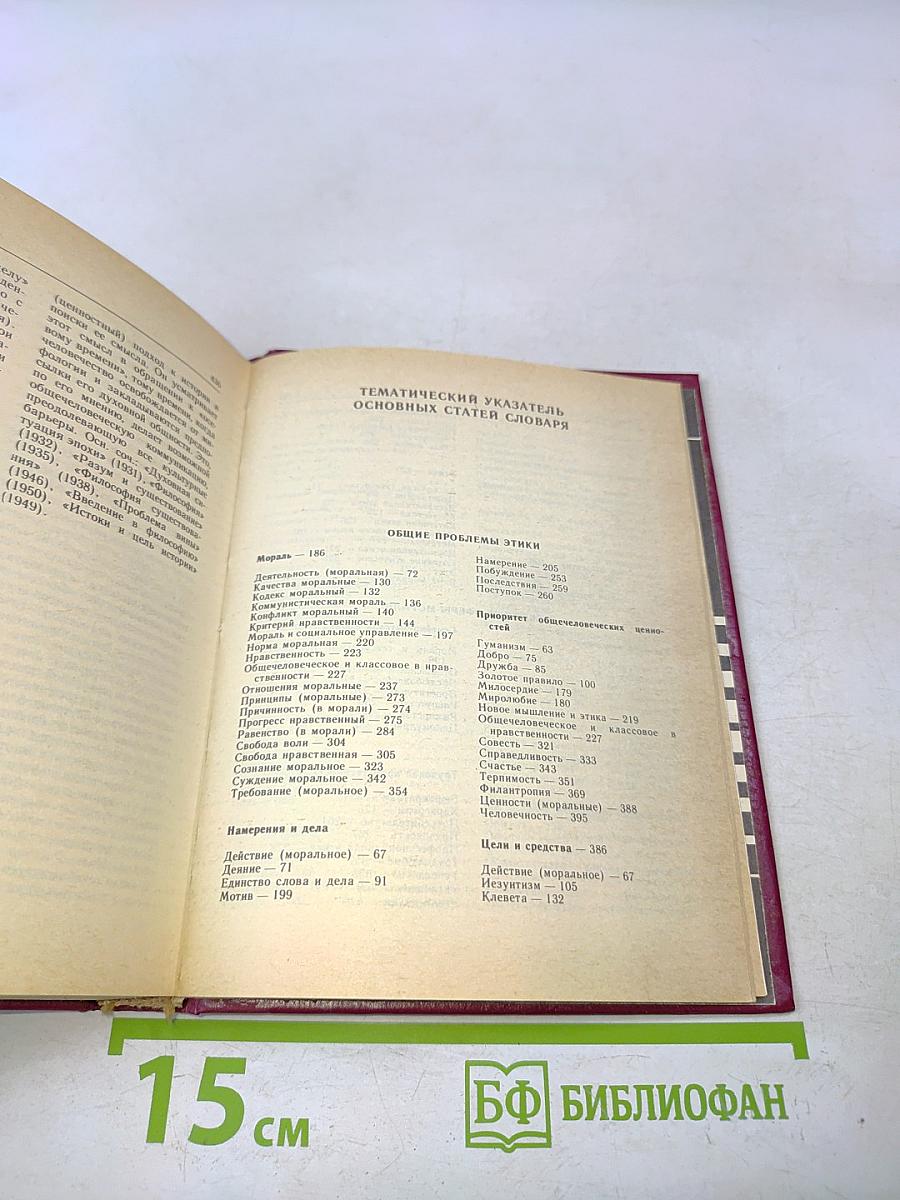 елу»
ден-
о с
че-
я).
430
(ценностный) подход к истории и
поиски ее смысла. Он усматривает
этот смысл в обращении к «осе-
вому времени», тому времени, когда
человечество освобождается от ми-
фологии и закладываются предпо-
сылки его духовной общности. Это,
по его мнению, делает возможной
общечеловеческую коммуникацию,
преодолевающую все культурные
барьеры. Осн. соч.: «Духовная си-
туация эпохи» (1931), «Философия»
(1932), «Разум и существование»
(1935), «Философия существова-
ния» (1938), «Проблема вины»
(1946), «Введение в философию»
(1950), «Истоки и цель истории»
(1949).
ТЕМАТИЧЕСКИЙ УКАЗАТЕЛЬ
ОСНОВНЫХ СТАТЕЙ СЛОВАРЯ
ОБЩИЕ ПРОБЛЕМЫ ЭТИКИ
Мораль — 186
Деятельность (моральная) — 72
Качества моральные — 130
Кодекс моральный — 132
Коммунистическая мораль — 136
Конфликт моральный — 140
Критерий нравственности — 144
Мораль и социальное управление — 197
Норма моральная — 220
Нравственность — 223
Общечеловеческое и классовое в нрав-
ственности — 227
Отношения моральные — 237
Принципы (моральные) — 273
Причинность (в морали) — 274
Прогресс нравственный — 275
Равенство (в морали) — 284
Свобода воли — 304
Свобода нравственная — 305
Сознание моральное — 323
Суждение моральное — 342
Требование (моральное) — 354
Намерения и дела
Действие (моральное) — 67
Деяние — 71
Единство слова и дела — 91
Мотив — 199
Намерение — 205
Побуждение — 253
Последствия — 259
Поступок — 260
Приоритет общечеловеческих ценно-
стей
Гуманизм — 63
Добро — 75
Дружба — 85
Золотое правило — 100
Милосердие — 179
Миролюбие — 180
Новое мышление и этика — 219
Общечеловеческое и классовое в
нравственности — 227
Совесть — 321
Справедливость — 333
Счастье — 343
Терпимость — 351
Филантропия — 369
Ценности (моральные) — 388
Человечность — 395
Цели и средства — 386
Действие (моральное) — 67
Иезуитизм — 105
Клевета — 132
15 см
БФ БИБЛИОФАН